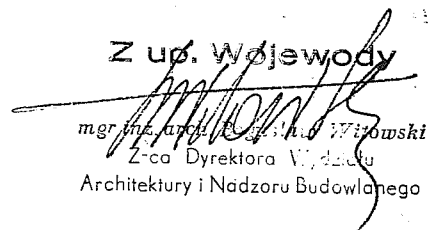 Z up. Wojewody
mgr inż. arch. Witowski
Z-ca Dyrektora Wydziału
Architektury i Nadzoru Budowlanego